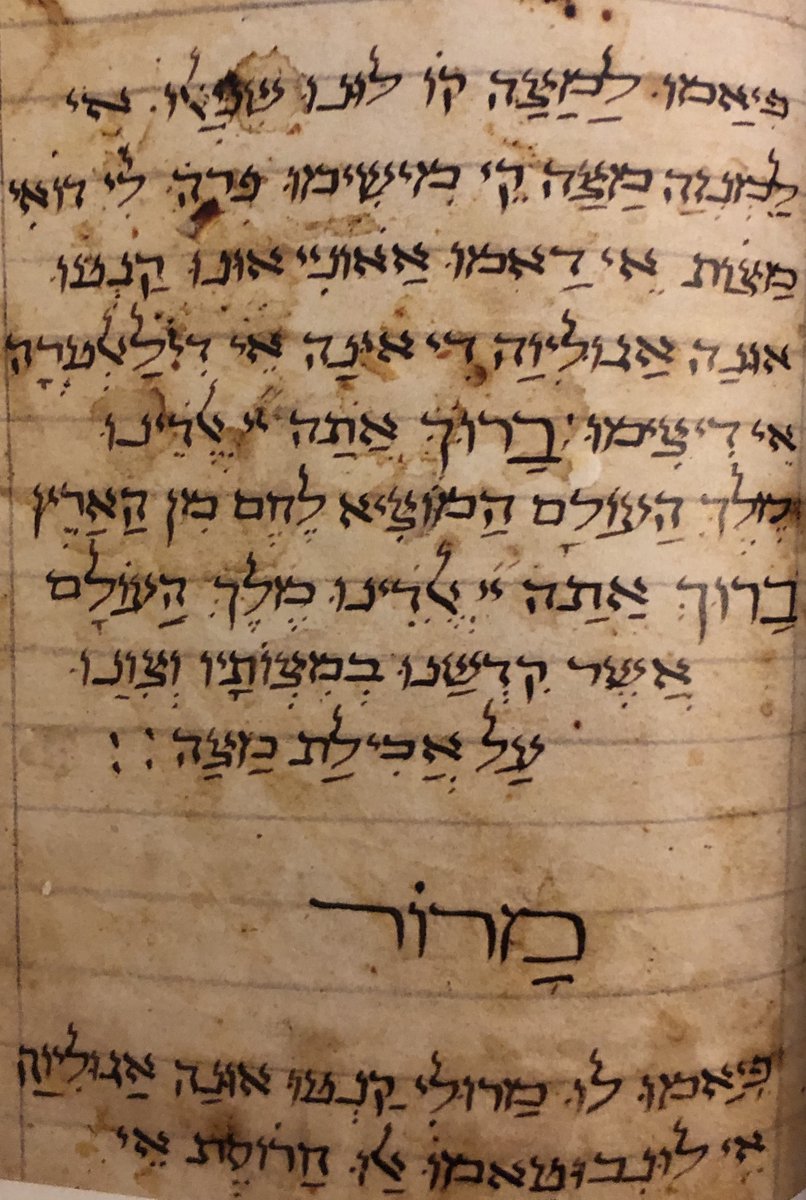 פִּיַאמוּ לַמַצַּה קוֹ לוּנוּ אִי
לַמִנְזַה מַצַּה קִי מִישִימוּ פְרַה לִי דוֹאִי
מַצּוֹת אִי דַאמוּ אַאוֹנְיִי אוּנוּ קַנְטוּ
אוּנַה אַנוּלִיוַה דִי אִינָה אֵי דִילַלְטְרָה
אֵי דִיצִימוּ: בָרוּךְ אַתַה יי אֱלֹדֵינוּ
מֶלֶךְ הַעוֹלַם הַמוֹצִיא לֶחֶם מִן הַאַרֶץ
בַרוּךְ אַתַה יי אֱלֹדֵינוּ מֶלֶךְ הַעוֹלָם
אַשֶר קִדְשַנוּ בְמִצְוֹתָיו וְצִוַנוּ
עַל אֲכִילַת מַצַּה:
מָרוֹר
פִּיַאמוּ לוּ מַרוּלִי קַנְטוּ אוּנַה אַנוּלִיוַה
אִי לוּנְבוּטַאמוּ חַרוֹסֶת אֵי